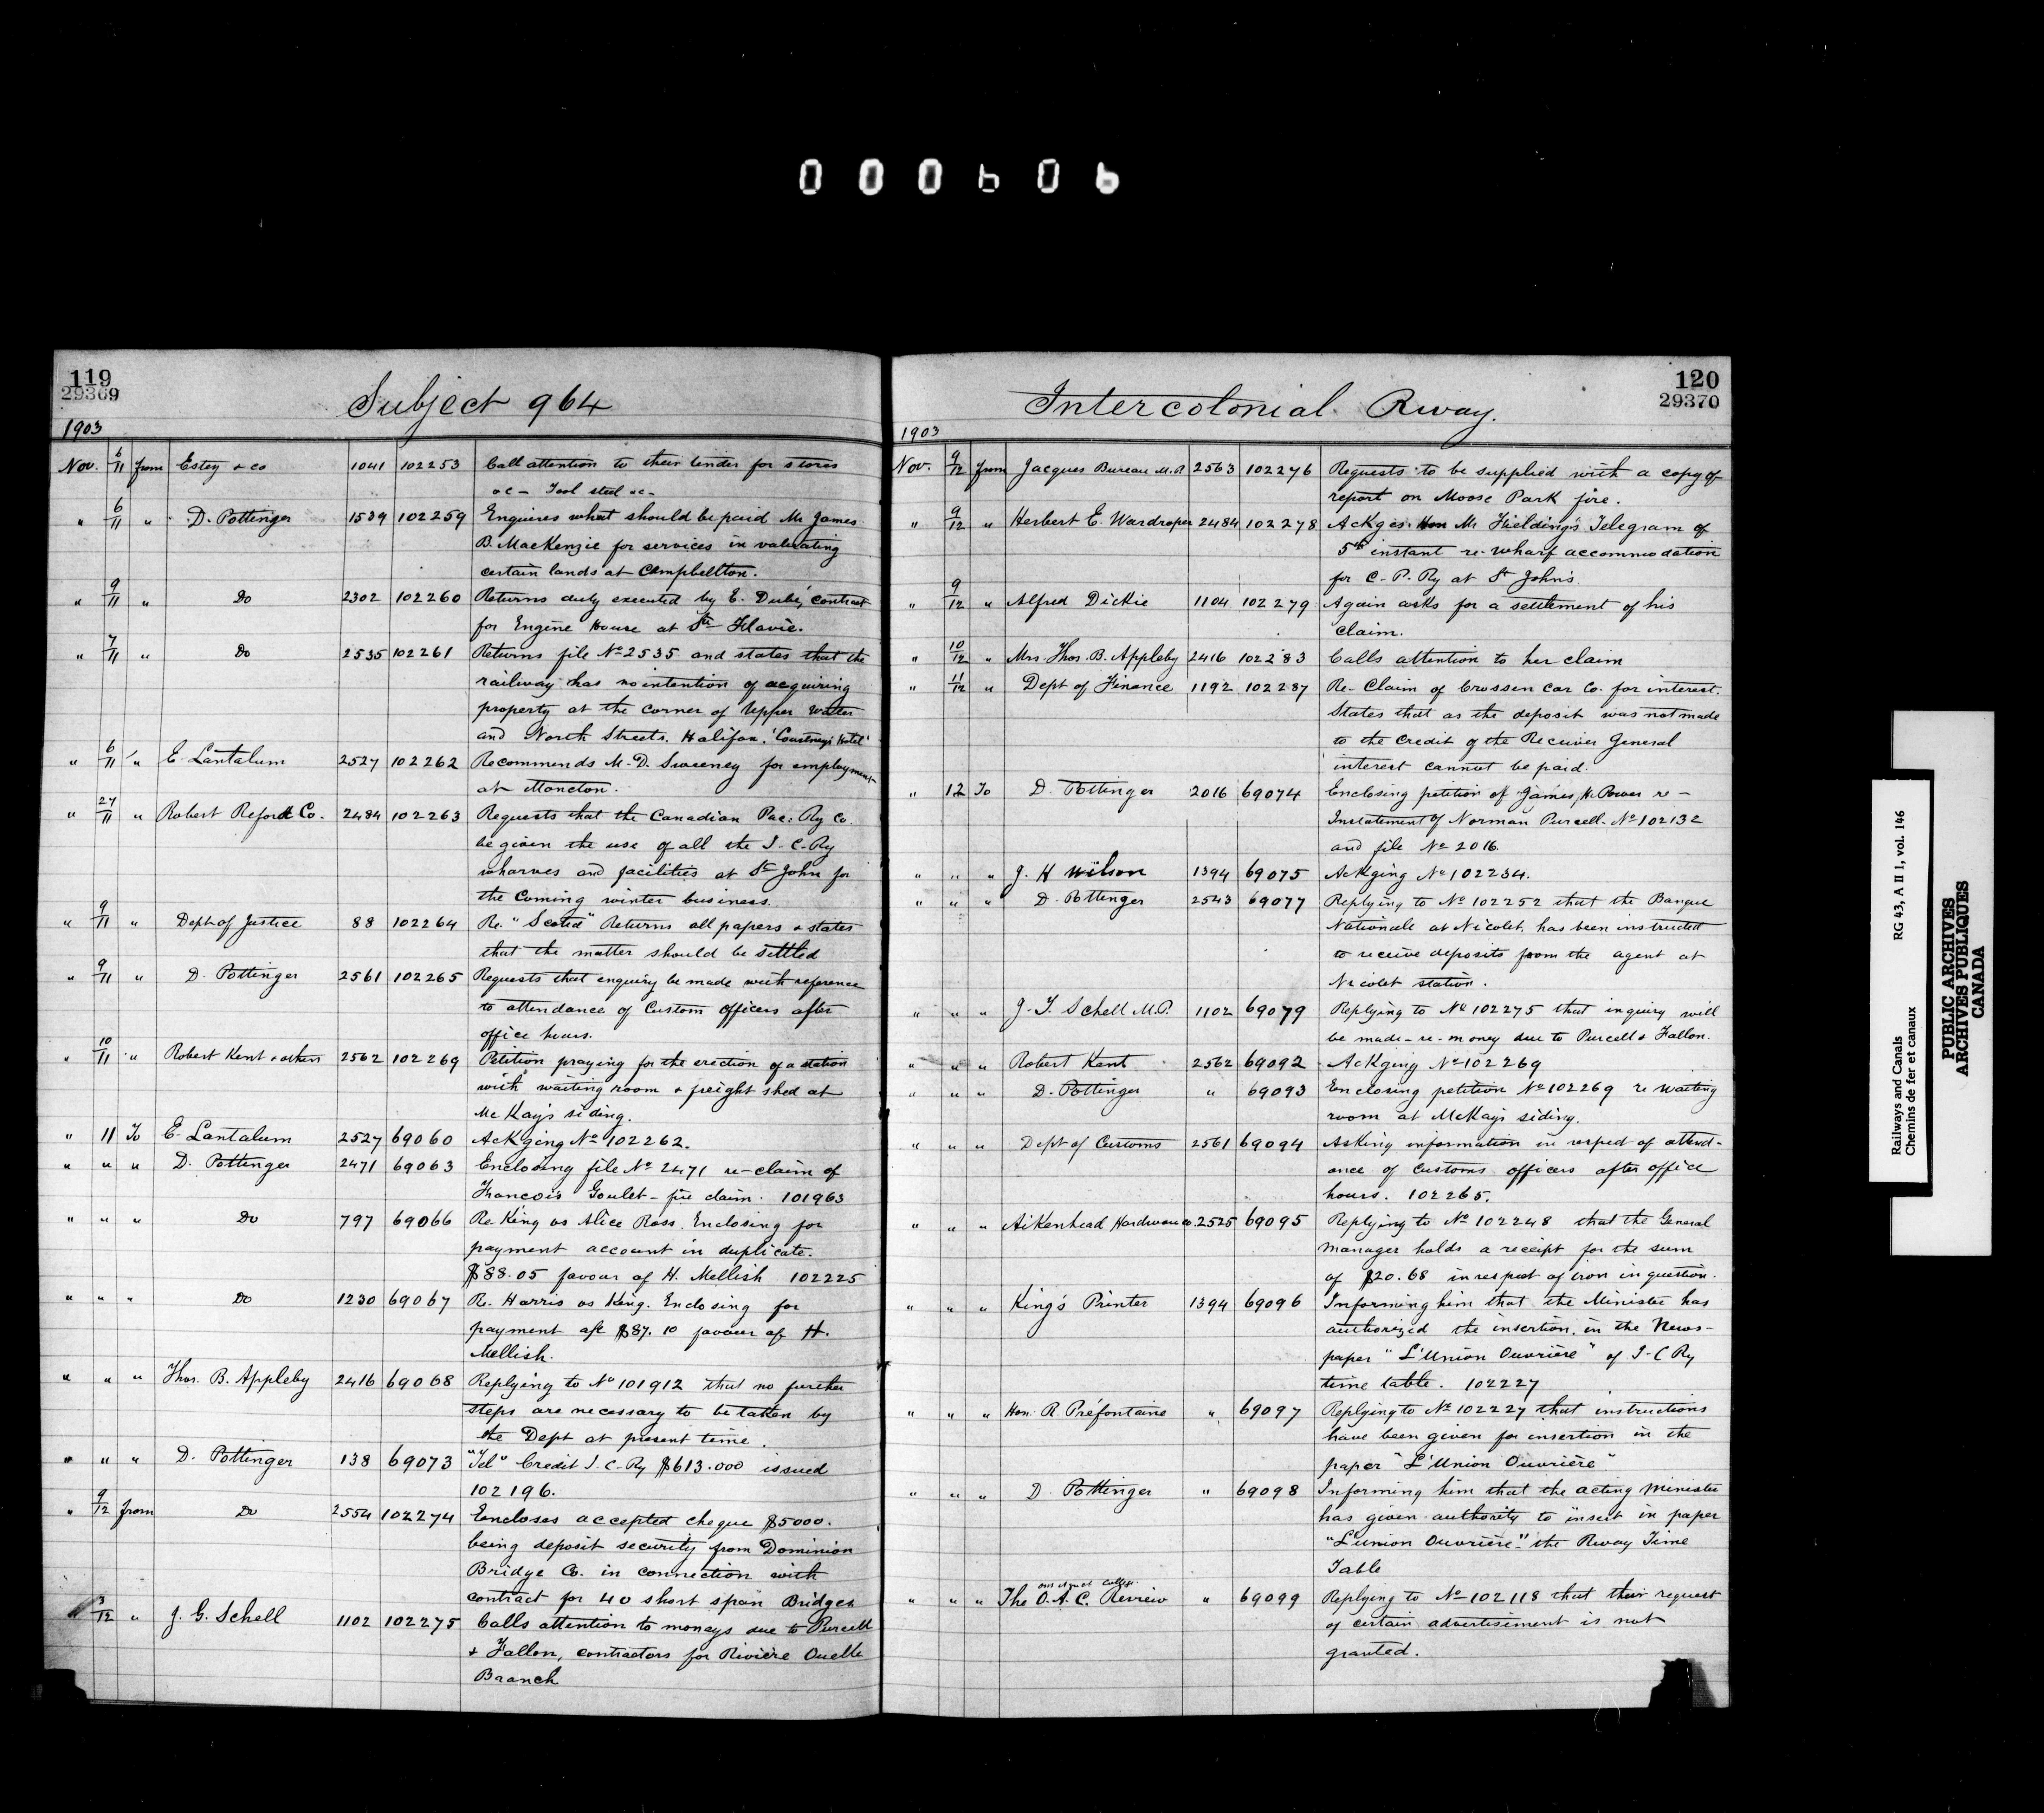 000606
119
29369
Subject 964
1903
Nov. 6/11 from Estey & Co 1041 102253 Call attention to their tender for stores
&c - Tool steel &c -
" 6/11 " D. Pottinger 1539 102259 Enquires what should be paid Mr James
B. MacKenzie for services in valuating
certain lands at Campbellton.
" 9/11 " Do 2302 102260 Returns duly executed by E. Dubé, contract
for Engine House at Ste Flavie.
" 7/11 " Do 2535 102261 Returns file No 2535 and states that the
railway has no intention of acquiring
property at the corner of Upper Water
and North Streets. Halifax. 'Courtney's Hotel'
" 6/11 " E. Lantalum 2527 102262 Recommends M. D. Sweeney for employment
at Moncton.
" 27/11 " Robert Reford Co. 2484 102263 Requests that the Canadian Pac: Ry Co.
be given the use of all the I-C-Ry
wharves and facilities at St John for
the coming winter business.
" 9/11 " Dept of Justice 88 102264 Re. "Scotia" Returns all papers & states
that the matter should be settled
" 9/11 " D. Pottinger 2561 102265 Requests that enquiry be made with reference
to attendance of Custom officers after
office hours.
" 10/11 " Robert Kent & others 2562 102269 Petition praying for the erection of a station
with waiting room & freight shed at
McKay's siding.
" 11 To E. Lantalum 2527 69060 Ackging No 102262.
" " " D. Pottinger 2471 69063 Enclosing file No 2471 re-claim of
Francois Goulet - fire claim. 101963
" " " Do 797 69066 Re. King vs Alice Ross. Enclosing for
payment account in duplicate.
$88.05 favour of H. Mellish 102225
" " " Do 1230 69067 Re. Harris vs King. Enclosing for
payment a/c $87.10 favour of H.
Mellish.
" " " Thos. B. Appleby 2416 69068 Replying to No 101912 that no further
steps are necessary to be taken by
the Dept at present time.
" " " D. Pottinger 138 69073 "Tel" Credit I-C-Ry $613.000 issued
102196.
" 9/12 from Do 2554 102274 Encloses accepted cheque $5000.
being deposit security from Dominion
Bridge Co. in connection with
contract for 40 short span Bridges
" 3/12 " J. G. Schell 1102 102275 Calls attention to moneys due to Purcell
& Fallon, contractors for Rivière Ouelle
Branch
120
29370
Intercolonial Rway.
1903
Nov. 9/12 from Jacques Bureau M.P. 2563 102276 Requests to be supplied with a copy of
report on Moose Park fire.
" 9/12 " Herbert E. Wardroper 2484 102278 Ackges Hon Mr Fielding's Telegram of
5th instant re-wharf accommodation
for C. P. Ry at St John's.
" 9/12 " Alfred Dickie 1104 102279 Again asks for a settlement of his
claim.
" 10/12 " Mrs. Thos. B. Appleby 2416 102283 Calls attention to her claim
" 11/12 " Dept of Finance 1192 102287 Re-Claim of Crossen Car Co. for interest.
States that as the deposit was not made
to the credit of the Receiver General
interest cannot be paid.
" 12 To D. Pottinger 2016 69074 Enclosing petition of James H. Power re-
Instatement of Norman Purcell - No 102132
and file No 2016.
" " " J. H Wilson 1394 69075 Ackging No 102234.
" " " D. Pottinger 2543 69077 Replying to No 102252 that the Banque
Nationale at Nicolet has been instructed
to receive deposits from the agent at
Nicolet station.
" " " J. T. Schell M.P. 1102 69079 Replying to No 102275 that inquiry will
be made - re - money due to Purcell & Fallon.
" " " Robert Kent 2562 69092 Ackging No 102269
" " " D. Pottinger " 69093 Enclosing petition No 102269 re waiting
room at McKay's siding.
" " " Dept of Customs 2561 69094 Asking information in respect of attend-
ance of customs officers after office
hours. 102265.
" " " Aikenhead Hardware Co 2525 69095 Replying to No 102248 that the General
Manager holds a receipt for the sum
of $20.68 in respect of iron in question.
" " " King's Printer 1394 69096 Informing him that the Minister has
authorized the insertion in the News-
paper "L'Union Ouvrière" of I-C Ry
time table. 102227
" " " Hon. R. Préfontaine " 69097 Replying to No 102227 that instructions
have been given for insertion in the
paper "L'Union Ouvrière"
" " " D. Pottinger " 69098 Informing him that the acting Minister
has given authority to insert in paper
"L'union Ouvrière" the Rway Time
Table
" " " The O. A. C. Review " 69099 Replying to No 102118 that their request
of certain advertisement is not
granted.
Railways and Canals RG 43, A II 1, vol. 146
Chemins de fer et canaux
PUBLIC ARCHIVES
ARCHIVES PUBLIQUES
CANADA